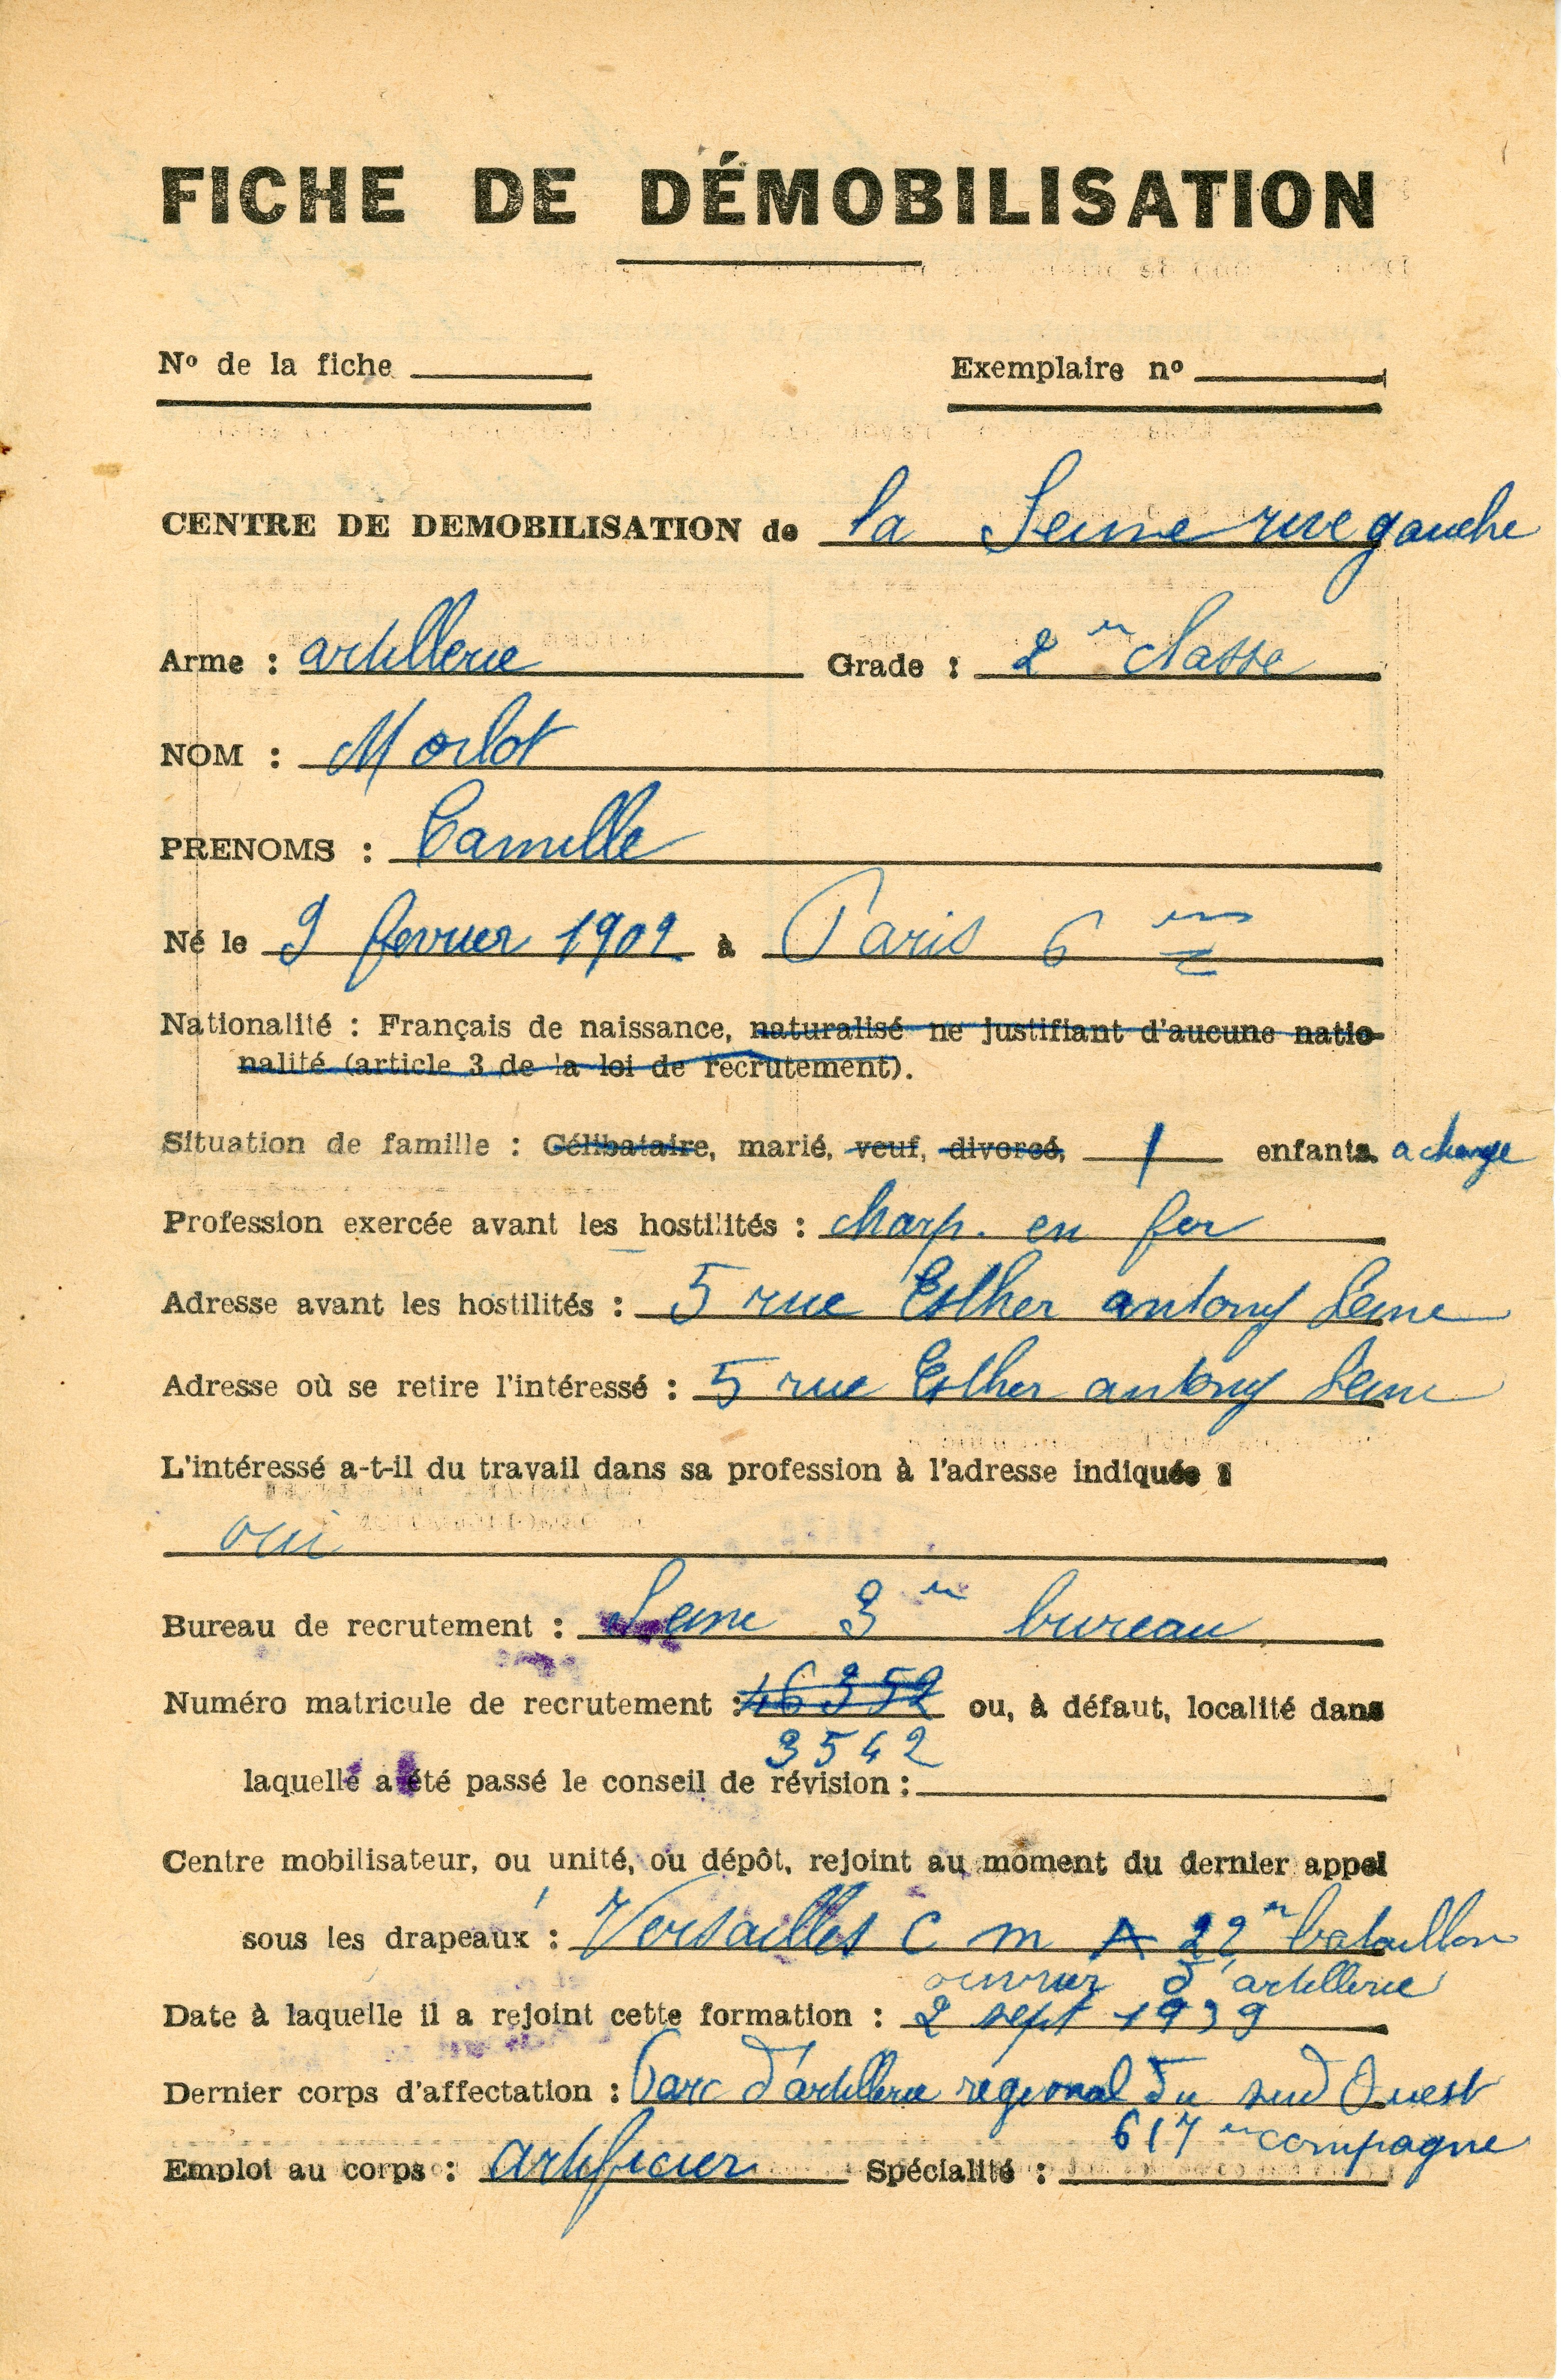 FICHE DE DÉMOBILISATION
Nº de la fiche
Exemplaire nº
CENTRE DE DEMOBILISATION de la Seine rive gauche
Arme : artillerie Grade : 2 em classe
NOM : Morlot
PRENOMS : Camille
Né le 9 fevrier 1902 à Paris 6 em
Nationalité : Français de naissance, naturalisé ne justifiant d'aucune natio-
nalité (article 3 de la loi de recrutement).
Situation de famille : Célibataire, marié, veuf, divorcé, 1 enfants a charge
Profession exercée avant les hostilités : charp. en fer
Adresse avant les hostilités : 5 rue Esther antony Seine
Adresse où se retire l'intéressé : 5 rue Esther antony Seine
L'intéressé a-t-il du travail dans sa profession à l'adresse indiquée :
oui
Bureau de recrutement : Seine 3 em bureau
Numéro matricule de recrutement : 46352 ou, à défaut, localité dans
3542
laquelle a été passé le conseil de révision :
Centre mobilisateur, ou unité, ou dépôt, rejoint au moment du dernier appel
sous les drapeaux : Versailles C m A 22 em bataillon
ouvrier d'artillerie
Date à laquelle il a rejoint cette formation : 2 sept 1939
Dernier corps d'affectation : Parc d'artillerie régional du sud Ouest
617 em compagne
Emploi au corps : artificier Spécialité :